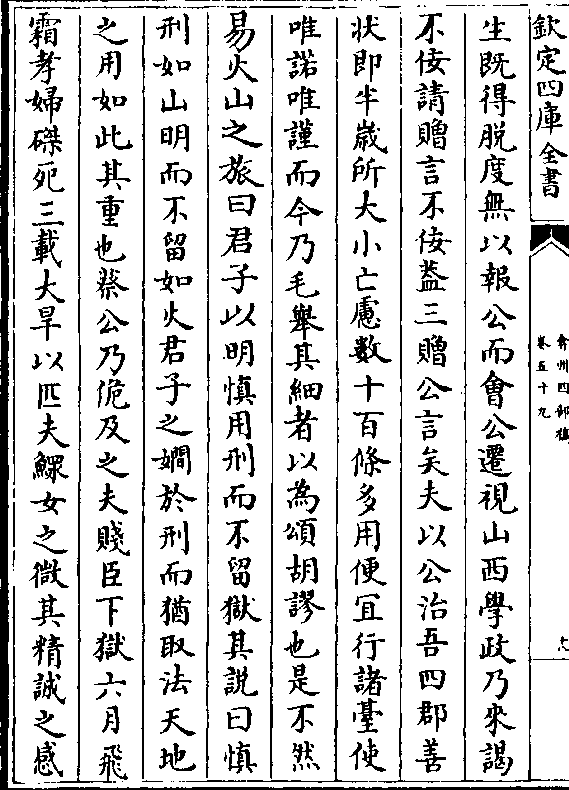 欽定四庫全書
弇州四部稿
卷五十九
生既得脱度無以報公而會公遷視山西學政乃來謁
不佞請贈言不佞葢三贈公言矣夫以公治吾四郡善
状即半嵗所大小亡慮數十百條多用便冝行諸臺使
唯諾唯謹而今乃毛舉其細者以為頌胡謬也是不然
易火山之旅曰君子以明慎用刑而不留獄其説曰慎
刑如山明而不留如火君子之嫺於刑而猶取法天地
之用如此其重也蔡公乃俛及之夫賤臣下獄六月飛
霜孝婦磔死三載大旱以匹夫鰥女之微其精誠之感